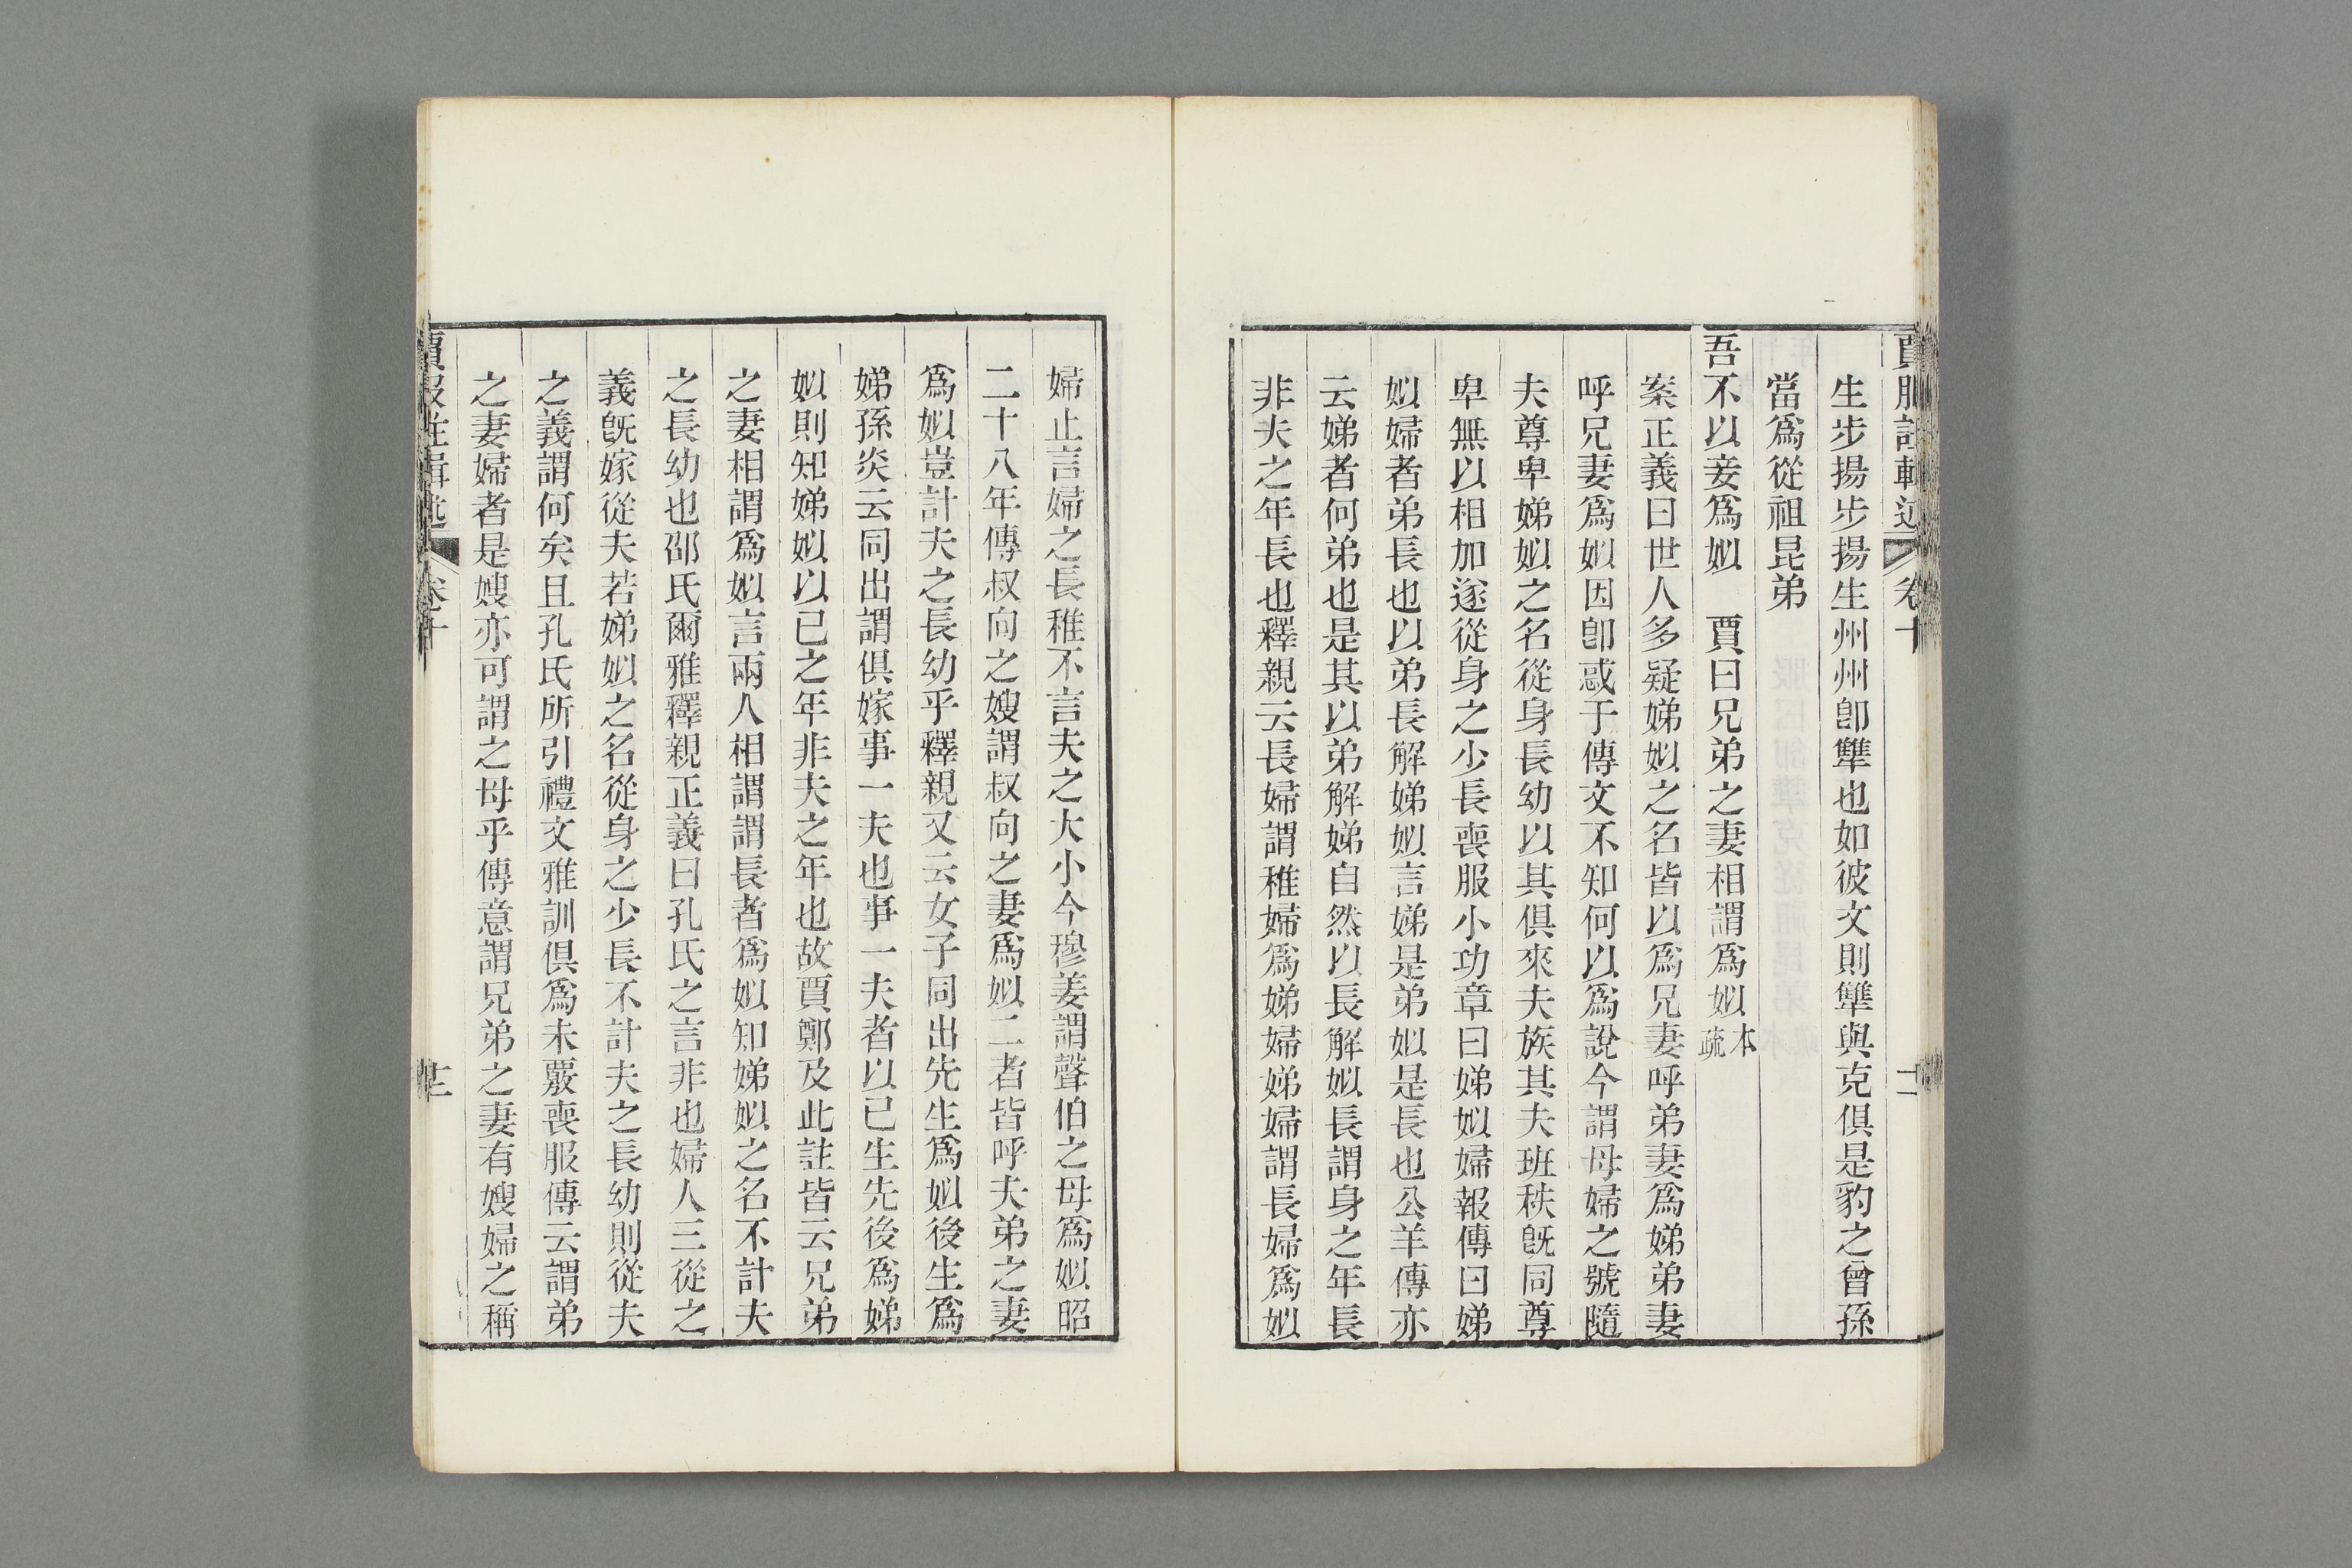 賈服註輯述 卷十
生步揚步揚生州州卽犨也如彼文則犨與克俱是豹之曾孫
當爲從祖昆弟
吾不以妾爲姒 賈曰兄弟之妻相謂爲姒本疏
案正義曰世人多疑娣姒之名皆以爲兄妻呼弟妻爲娣弟妻
呼兄妻爲姒因卽惑于傳文不知何以爲說今謂母婦之號隨
夫尊卑娣姒之名從身長幼以其俱來夫族其夫班秩旣同尊
卑無以相加遂從身之少長喪服小功章曰娣姒婦報傳曰娣
姒婦者弟長也以弟長解娣姒言娣是弟姒是長也公羊傳亦
云娣者何弟也是其以弟解娣自然以長解姒長謂身之年長
非夫之年長也釋親云長婦謂稚婦爲娣婦娣婦謂長婦爲姒
婦止言婦之長稚不言夫之大小今穆姜謂聲伯之母爲姒昭
二十八年傳叔向之嫂謂叔向之妻爲姒二者皆呼夫弟之妻
爲姒豈計夫之長幼乎釋親又云女子同出先生爲姒後生爲
娣孫炎云同出謂俱嫁事一夫也事一夫者以已生先後爲娣
姒則知娣姒以已之年非夫之年也故賈鄭及此註皆云兄弟
之妻相謂爲姒言兩人相謂謂長者爲姒知娣姒之名不計夫
之長幼也邵氏爾雅釋親正義曰孔氏之言非也婦人三從之
義旣嫁從夫若娣姒之名從身之少長不計夫之長幼則從夫
之義謂何矣且孔氏所引禮文雅訓俱爲未覈喪服傳云謂弟
之妻婦者是嫂亦可謂之母乎傳意謂兄弟之妻有嫂婦之稱
賈服註輯述 卷十